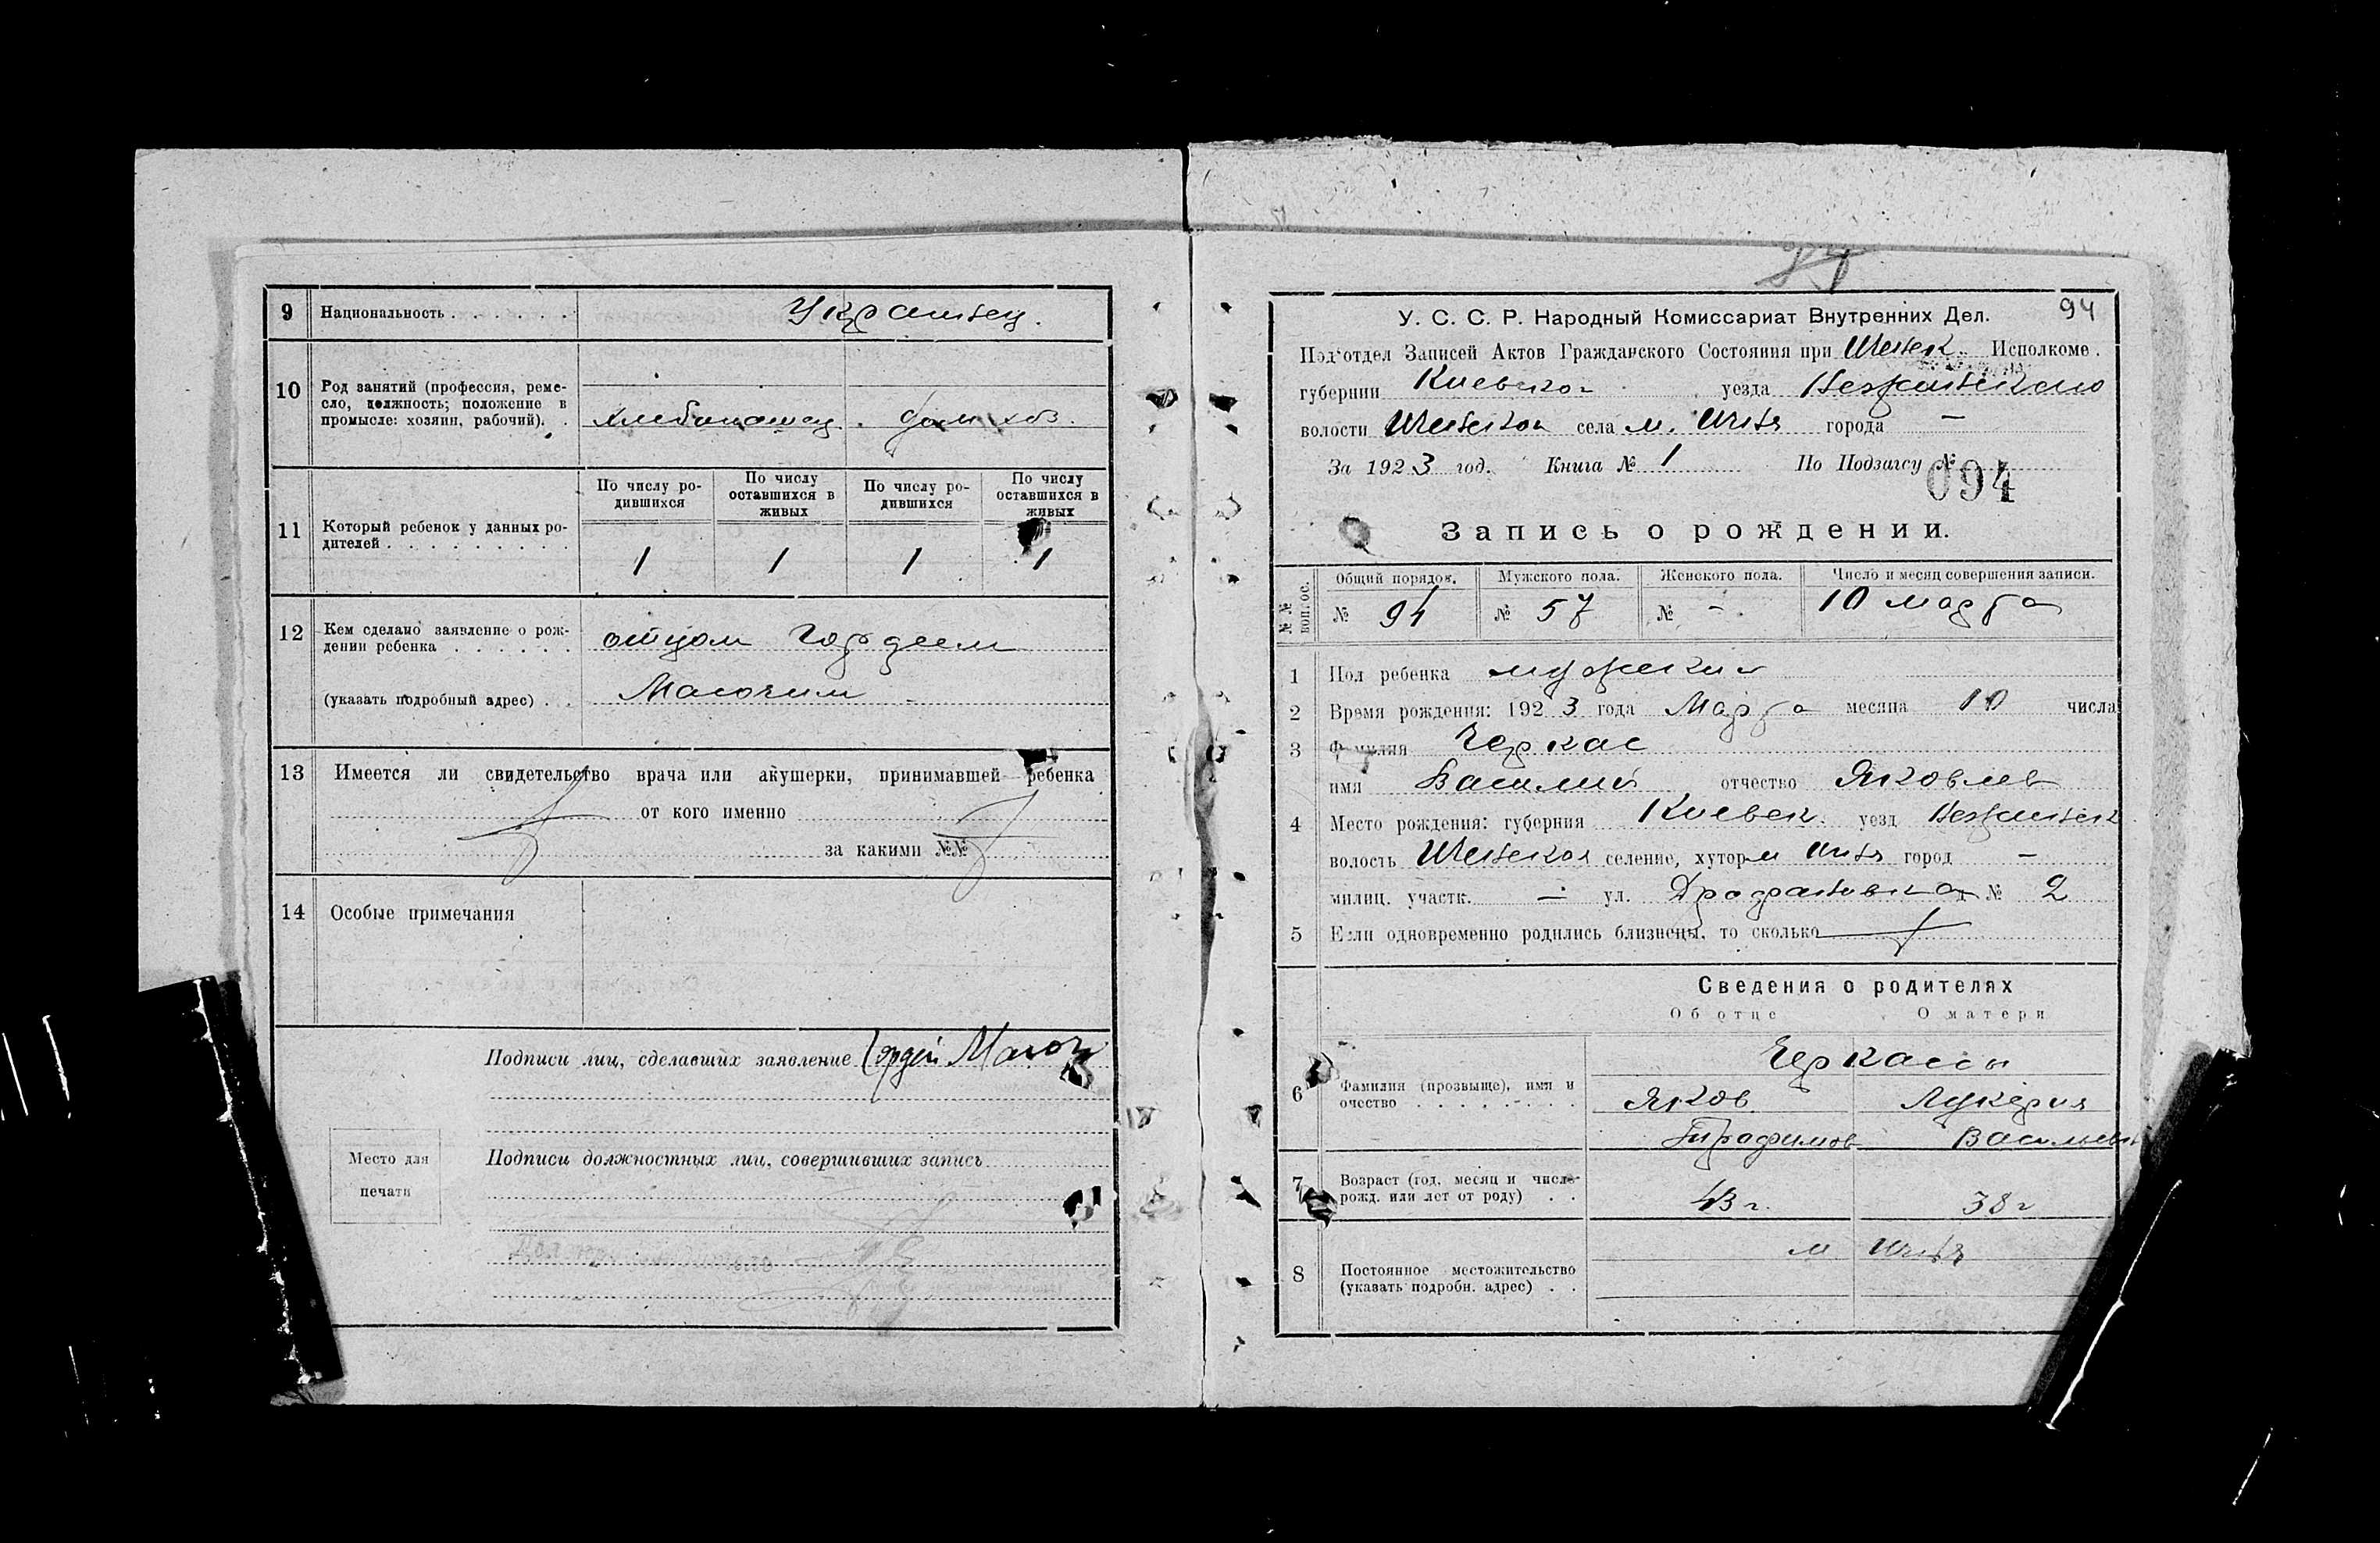 9 Национальность . . . . . . . Украинец.
10 Род занятий (профессия, реме-
сло, должность; положение в
промысле: хозяин, рабочий). .
хлебопашец. дом. хоз.
По числу ро-
дившихся
По числу
оставшихся в
живых
По числу ро-
дившихся
По числу
оставшихся в
живых
11 Который ребенок у данных ро-
дителей . . . . . . . . . .
1 1 1 1
12 Кем сделано заявление о рож-
дении ребенка . . . . . . отцом Гордеем
(указать подробный адрес) . . Масючим
13 Имеется ли свидетельство врача или акушерки, принимавшей ребенка
от кого именно
за какими №№
14 Особые примечания
Подписи лиц, сделавших заявление Гордей
Подписи должностных лиц, совершивших запись
Место для
печати
94
У. С. С. Р. Народный Комиссариат Внутренних Дел.
Подотдел Записей Актов Гражданского Состояния при Исполкоме.
губернии Киевской уезда
волости села м. города —
За 1923 год. Книга № 1 По Подзагсу №
094
Запись о рождении.
№№ вопрос.
Общий порядок. Мужского пола. Женского пола. Число и месяц совершения записи.
№ 94 № 57 № - 10 марта
1 Пол ребенка мужский
2 Время рождения: 1923 года Марта месяца 10 числа
3 Фамилия Черкас
имя Василий отчество Яковлев
4 Место рождения: губерния Киевск. уезд
волость селение, хутор м город —
милиц. участк. — ул. № 2
5 Если одновременно родились близнецы, то сколько
Сведения о родителях
Об отце О матери
Черкассы
6 Фамилия (прозвыще), имя и
очество . . . . . . . .
Яков Лукерия
Трофимов Васильевн
7 Возраст (год, месяц и число
рожд. или лет от роду) . .
43 г. 38 г
м
8 Постоянное местожительство
(указать подробн. адрес) . .